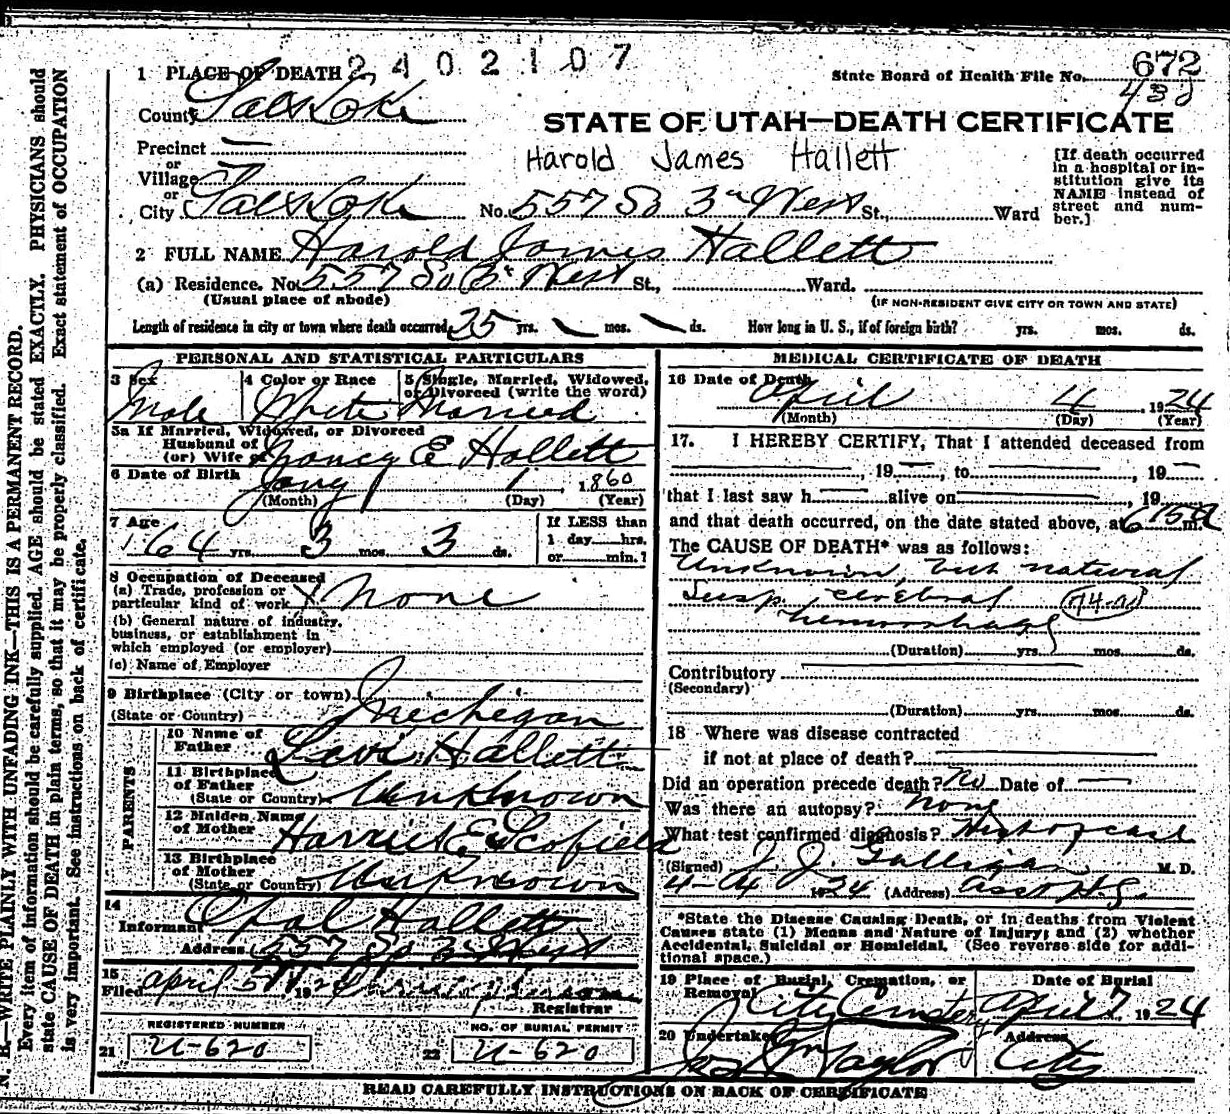 2402107
1 PLACE OF DEATH
State Board of Health File No. 672
432
County Salt Lake
STATE OF UTAH—DEATH CERTIFICATE
Harold James Hallett
Precinct —
or
Village
or
City Salt Lake No. 557 So 3rd West St., Ward
[If death occurred
in a hospital or in-
stitution give its
NAME instead of
street and num-
ber.]
2 FULL NAME Harold James Hallett
(a) Residence. No. 557 So 3rd West St., Ward.
(Usual place of abode)
(IF NON-RESIDENT GIVE CITY OR TOWN AND STATE)
Length of residence in city or town where death occurred 35 yrs. mos. ds. How long in U. S., if of foreign birth? yrs. mos. ds.
PERSONAL AND STATISTICAL PARTICULARS
3 Sex
Male
4 Color or Race
White
5 Single, Married, Widowed,
or Divorced (write the word)
Married
5a If Married, Widowed, or Divorced
Husband of
(or) Wife of Nancy E Hallett
6 Date of Birth Jany 1, 1860
(Month) (Day) (Year)
7 Age
64 yrs. 3 mos. 3 ds.
If LESS than
1 day hrs.
or min.?
8 Occupation of Deceased
(a) Trade, profession or
particular kind of work None
(b) General nature of industry,
business, or establishment in
which employed (or employer)
(c) Name of Employer
9 Birthplace (City or town)
(State or Country) Mechegan
PARENTS
10 Name of
Father Levi Hallett
11 Birthplace
of Father
(State or Country) Unknown
12 Maiden Name
of Mother Harriet E Scofield
13 Birthplace
of Mother
(State or Country) Unknown
14
Informant Opal Hallett
Address 557 So 3 West
15
Filed April 5, 1924
Registrar
REGISTERED NUMBER
21 U-620
NO. OF BURIAL PERMIT
22 U-620
MEDICAL CERTIFICATE OF DEATH
16 Date of Death
April 4, 1924
(Month) (Day) (Year)
17. I HEREBY CERTIFY, That I attended deceased from
, 19—, to , 19—
that I last saw h alive on , 19
and that death occurred, on the date stated above, at 6 15 a m.
The CAUSE OF DEATH* was as follows:
Unknown, but natural
Susp. cerebral 74-a
hemorrhage
(Duration) yrs. mos. ds.
Contributory
(Secondary)
(Duration) yrs. mos. ds.
18 Where was disease contracted
if not at place of death?
Did an operation precede death? No Date of —
Was there an autopsy? None
What test confirmed diagnosis? Hist of case
(Signed) J. J. Galligan M. D.
4-4 1924 (Address) Asst H.O.
*State the Disease Causing Death, or in deaths from Violent
Causes state (1) Means and Nature of Injury; and (2) whether
Accidental, Suicidal or Homicidal. (See reverse side for addi-
tional space.)
19 Place of Burial, Cremation, or
Removal City Cemetery
Date of Burial
April 7 1924
20 Undertaker
Jos Wm Taylor
Address
City
READ CAREFULLY INSTRUCTIONS ON BACK OF CERTIFICATE
N. B.—WRITE PLAINLY WITH UNFADING INK—THIS IS A PERMANENT RECORD.
Every item of information should be carefully supplied. AGE should be stated EXACTLY. PHYSICIANS should
state CAUSE OF DEATH in plain terms, so that it may be properly classified. Exact statement of OCCUPATION
is very important. See instructions on back of certificate.